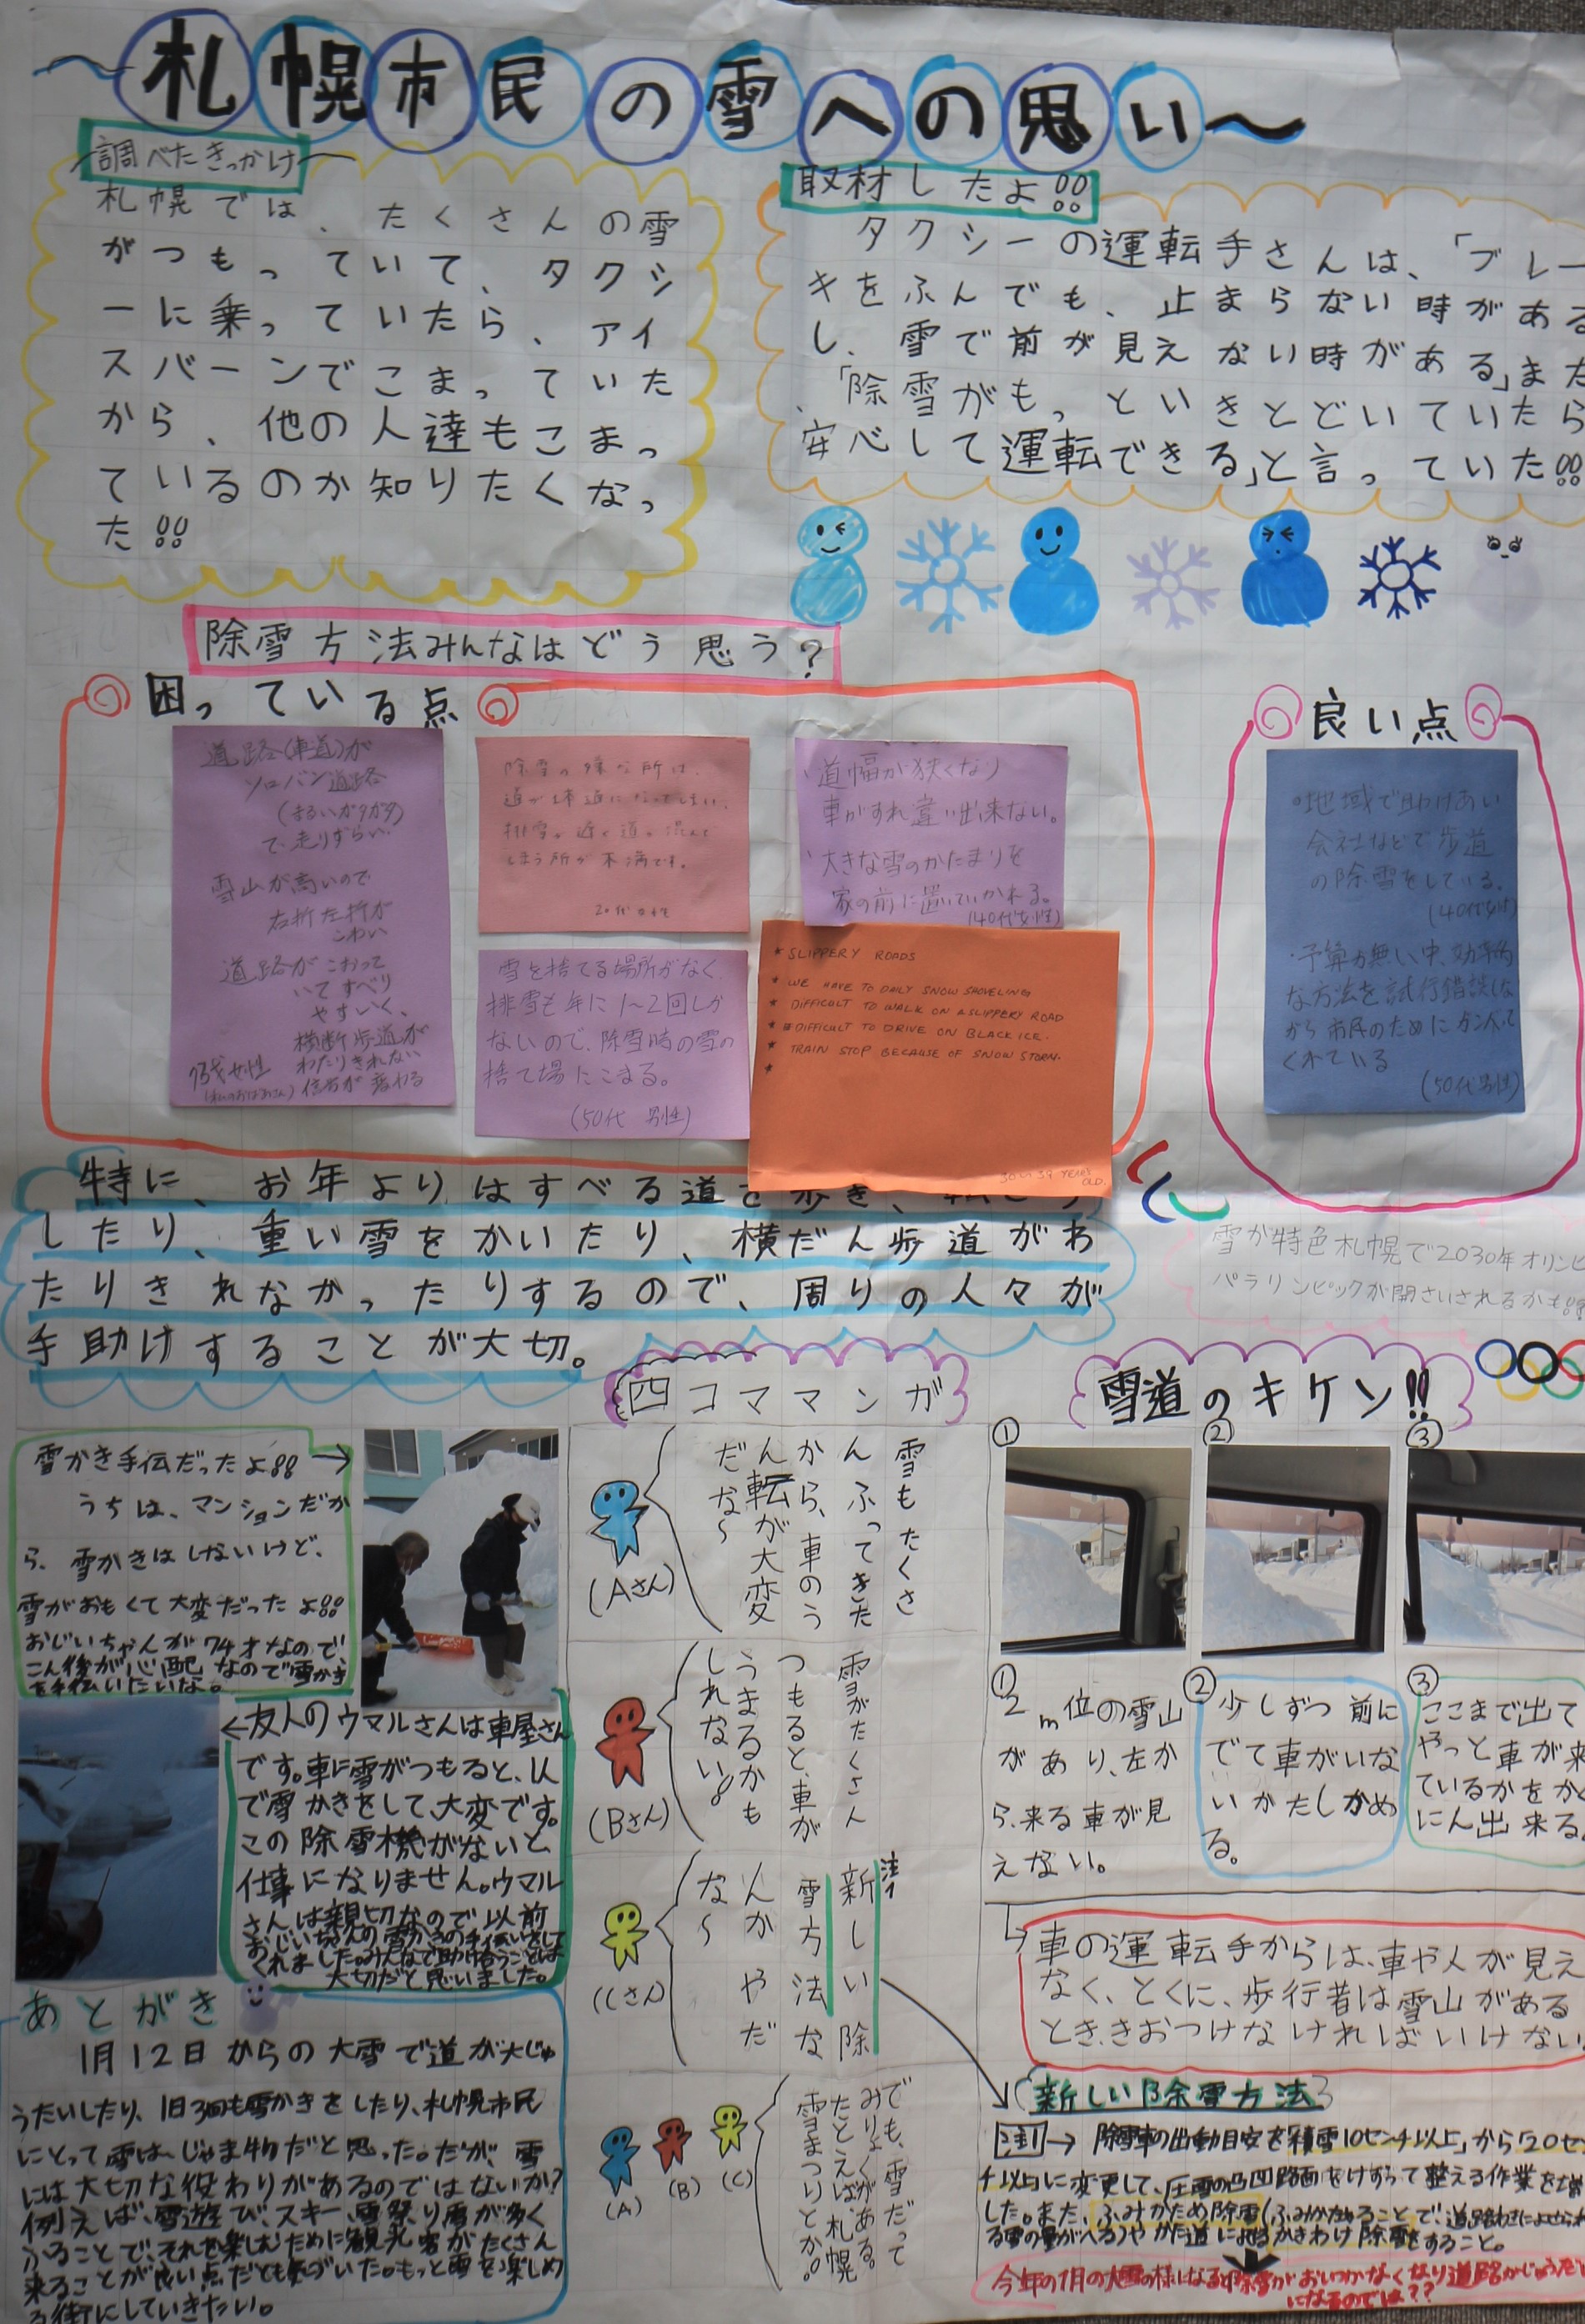 ～札幌市民の雪への思い～
調べたきっかけ
札幌では、たくさんの雪
がつもっていて、タクシ
ーに乗っていたら、アイ
スバーンでこまっていた
から、他の人達もこまっ
ているのか知りたくなっ
た!!
取材したよ!!
タクシーの運転手さんは、「ブレー
キをふんでも、止まらない時がある
し、雪で前が見えない時がある」また
、「除雪がもっといきとどいていたら
安心して運転できる」と言っていた!!
除雪方法みんなはどう思う?
困っている点
道路(車道)が
ソロバン道路
(まるいガタガタ)
で走りずらい。
雪山が高いので
右折左折が
こわい
道路がこおって
いてすべり
やすいく、
横断歩道が
わたりきれない
信号が変わる
女性
除雪の所は、
道がになってしまい、
排雪の道が混んで
しまう所が不満です。
20代女性
・道幅が狭くなり
車がすれ違い出来ない。
・大きな雪のかたまりを
家の前に置いていかれる。
(40代女性)
雪を捨てる場所がなく、
排雪も年に1~2回しか
ないので、除雪時の雪の
捨て場にこまる。
(50代 男性)
* SLIPPERY ROADS
* WE HAVE TO DAILY SNOW SHOVELING
* DIFFICULT TO WALK ON A SLIPPERY ROAD
* DIFFICULT TO DRIVE ON BLACK ICE.
* TRAIN STOP BECAUSE OF SNOW STORM.
*
YEARS OLD.
良い点
・地域で助けあい
会社などで歩道
の除雪をしている。
(40代女性)
・予算が無い中、効率的
な方法を試行錯誤しな
がら市民のためにガンバって
くれている
(50代男性)
特に、お年よりはすべる道を歩き、
したり、重い雪をかいたり、横だん歩道がわ
たりきれなかったりするので、周りの人々が
手助けすることが大切。
雪が特色札幌で2030年オリンピ
パラリンピックが開さいされるかも!!
四コママンガ
雪もたくさ
んふってきた
から、車のう
ん転が大変
だな～
(Aさん)
雪がたくさん
つもると、車が
うまるかも
しれない!!
(Bさん)
注1
新しい除
雪方法な
んかやだ
な～
(Cさん)
でも、雪だって
みりょくがある。
たとえば、札幌
雪まつりとか!!
(A)
(B)
(C)
雪道のキケン!!
①
②
③
①2m位の雪山
があり、左か
ら来る車が見
えない。
②少しずつ前に
でて車がいな
いかたしかめ
る。
③ここまで出て
やっと車が来
ているかをかく
にん出来る。
車の運転手からは、車や人が見え
なく、とくに、歩行者は雪山がある
とき、きおつけなければいけない。
新しい除雪方法
注1→除雪車の出動目安を「積雪10センチ以上」から「20セン
チ以上に変更して、圧雪の凸凹路面をけずって整える作業を増
した。また、ふみかため除雪(ふみかためることで、道路わきによせられ
る雪の量がへる)やがた道によるかきわけ除雪をすること。
今年の1月の大雪の様になると除雪がおいつかなくなり道路がじゅうたい
になるのでは??
雪かき手伝だったよ!!→
うちは、マンションだか
ら、雪かきはしないけど、
雪がおもくて大変だったよ!!
おじいちゃんが74才なので、
こん後が心配なので雪かき
を手伝いたいな。
←友人のウマルさんは車屋さん
です。車に雪がつもると、1人
で雪かきをして、大変です。
この除雪機がないと
仕事になりません。ウマル
さんは親切なので以前
おじいちゃんの雪かきの手伝いをして
くれました。みんなで助け合うことは
大切だと思いました。
あとがき
1月12日からの大雪で道が大じゅ
うたいしたり、1日3回も雪かきをしたり、札幌市民
にとって雪は、じゃま物だと思った。だが、雪
には大切な役わりがあるのではないか?
例えば、雪遊び、スキー、雪祭り雪が多く
ふることで、それを楽しむために観光客がたくさん
来ることが良い点だとも気づいた。もっと雪を楽しめ
る街にしていきたい。